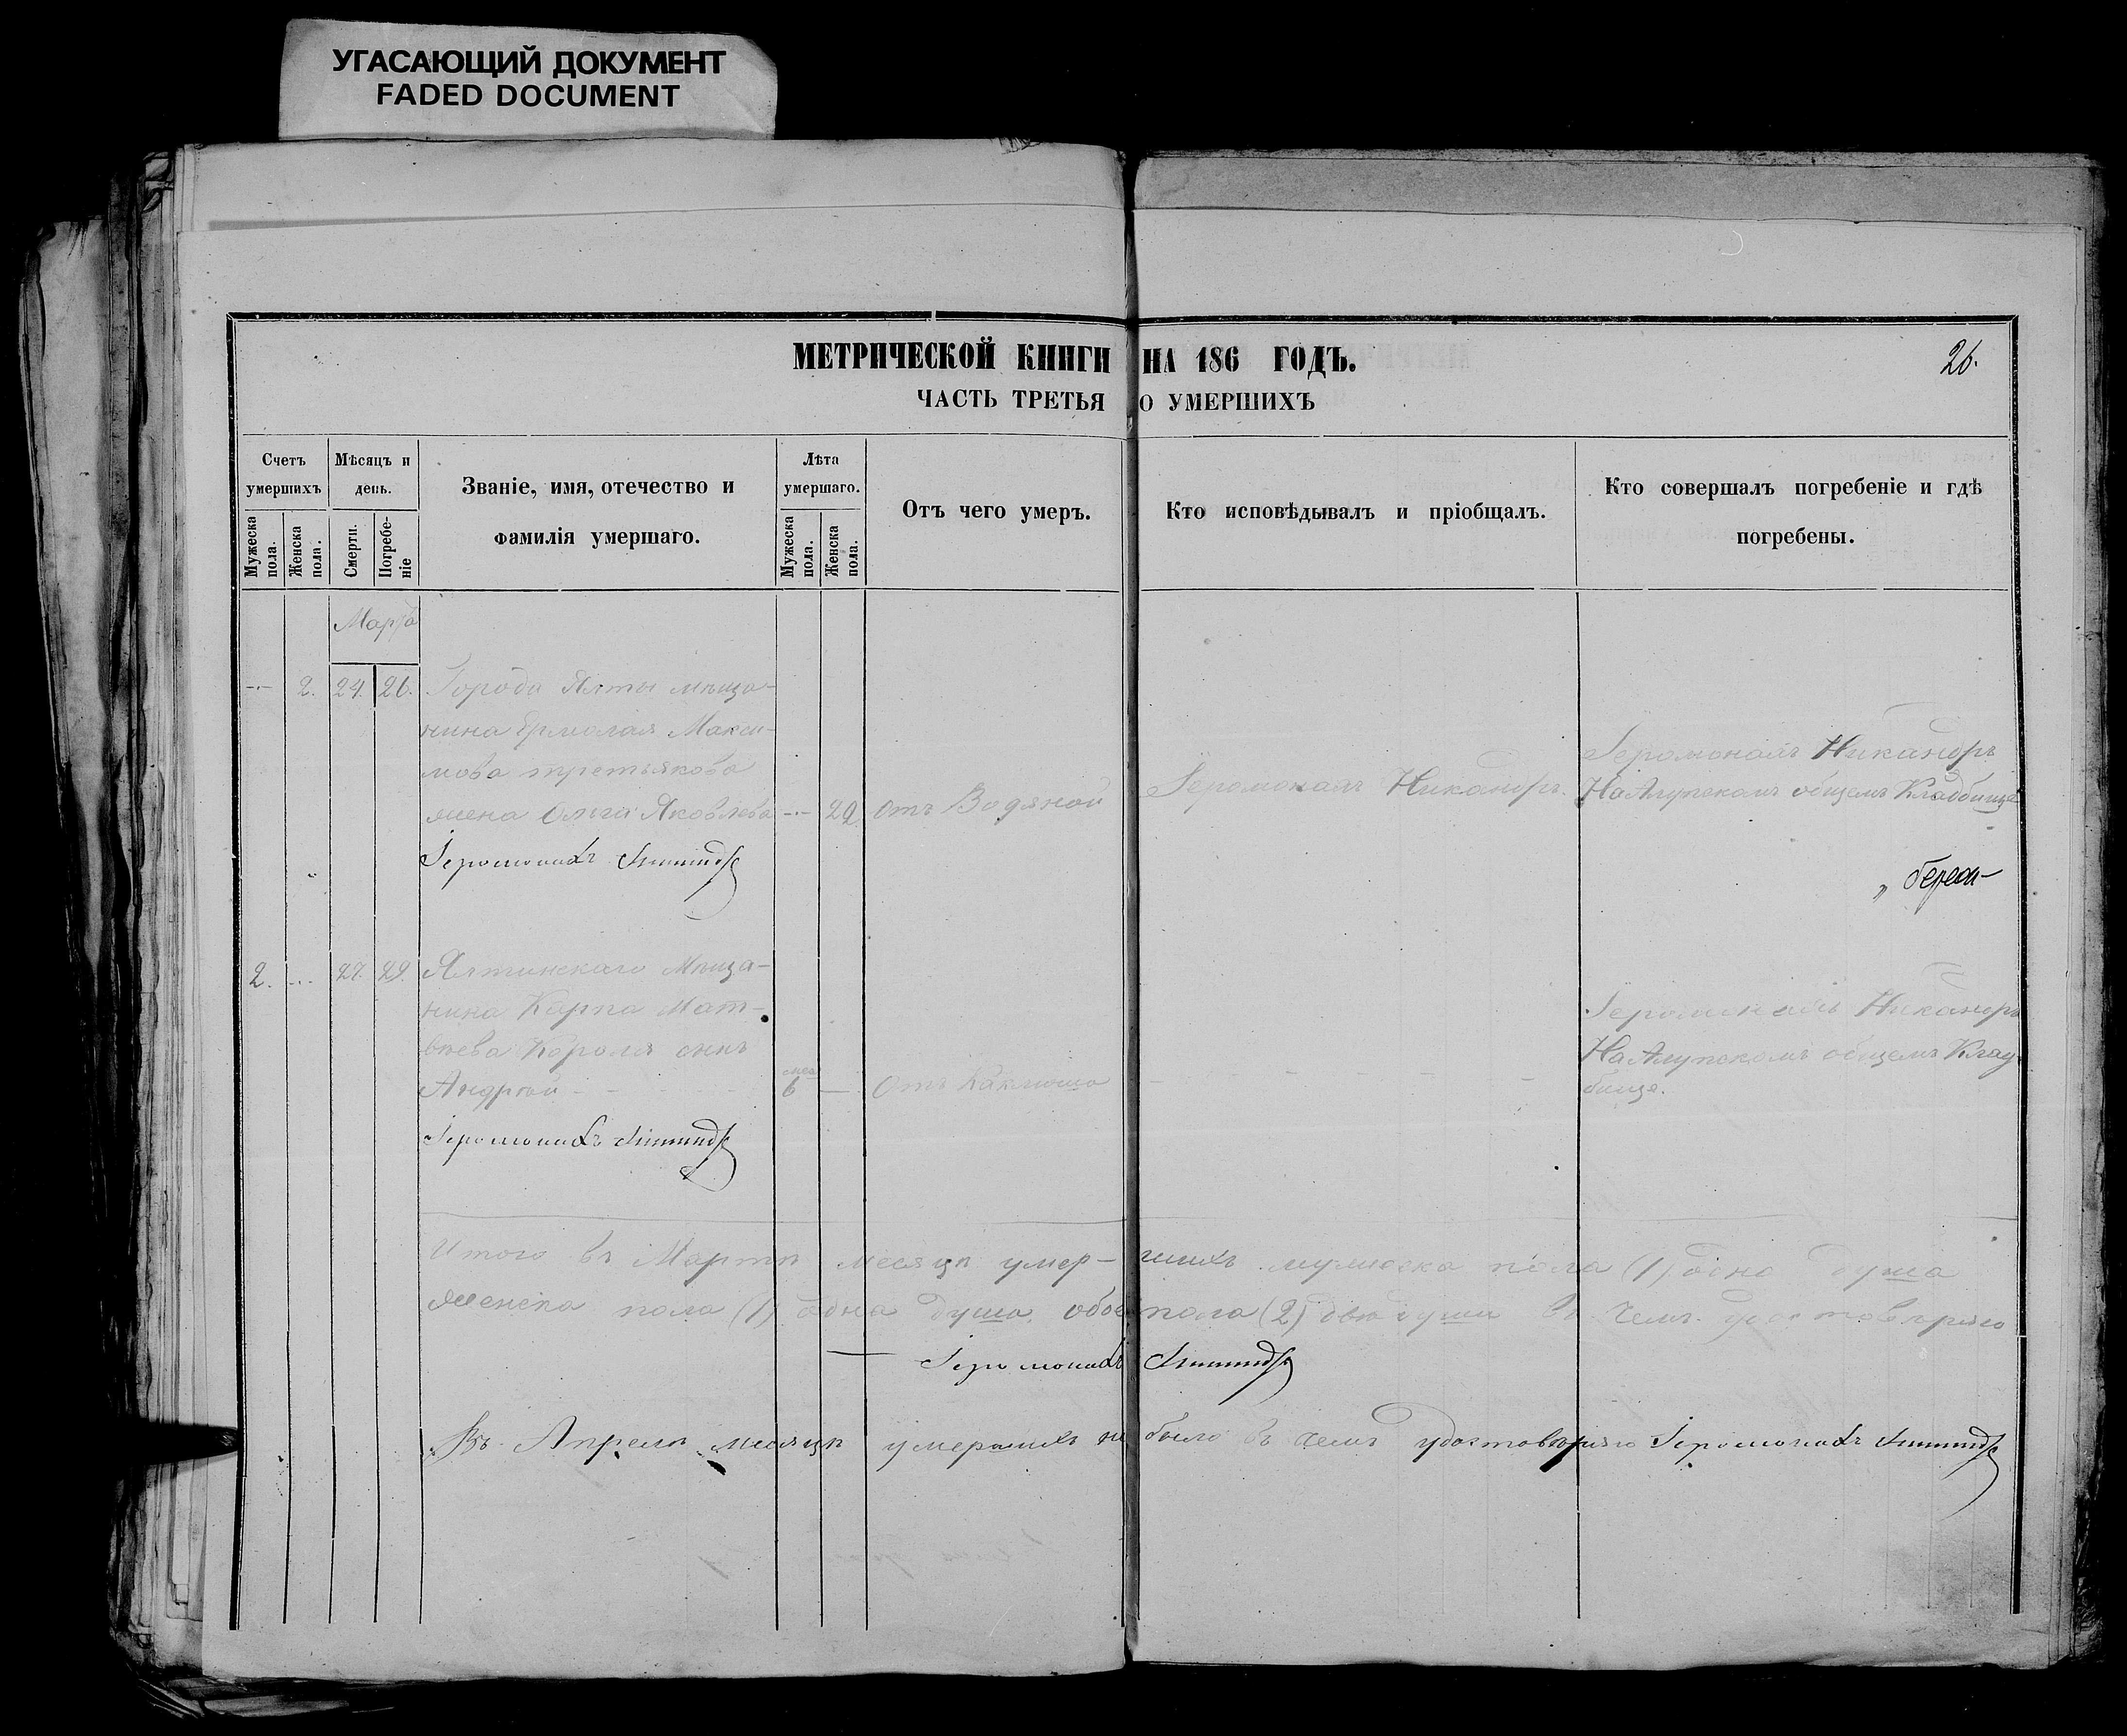 УГАСАЮЩИЙ ДОКУМЕНТ
FADED DOCUMENT
МЕТРИЧЕСКОЙ КНИГИ НА 186 ГОДЪ.
26.
ЧАСТЬ ТРЕТЬЯ О УМЕРШИХЪ
Счетъ умершихъ
Мужеска пола.
Женска пола.
Мѣсяцъ и день.
Смерти.
Погребе-
ніе
Званіе, имя, отечество и
фамилія умершаго.
Лѣта умершаго.
Мужеска пола.
Женска пола.
Отъ чего умеръ.
Кто исповѣдывалъ и пріобщалъ.
Кто совершалъ погребеніе и гдѣ
погребены.
Марта
2. 24. 26. Города Ялты мѣща-
нина Ермолая Макси-
мова третьякова
жена Ольга Яковлева
29 отъ Водяной
Іеромонахъ Никаноръ.
Іеромонахъ Никаноръ
На Алупскомъ общемъ Кладбище
Іеромонахъ
2. 27. 29. Ялтинскаго Мѣща-
нина Карпа Мат-
вѣева Короля сынъ
Андрей
мес. 6
Отъ Каклюша
Іеромонахъ Никаноръ
На Алупскомъ общемъ Клад-
бище.
Іеромонахъ
Итого въ Мартѣ месяцѣ умер-шихъ мужеска пола (1) одна душа
женска пола (1) одна душа, обое пола (2) двѣ души въ чемъ удостовѣряю
Іеромонахъ
Въ Апрелѣ месяцѣ умершихъ не было въ чемъ удостовѣряю Іеромонахъ